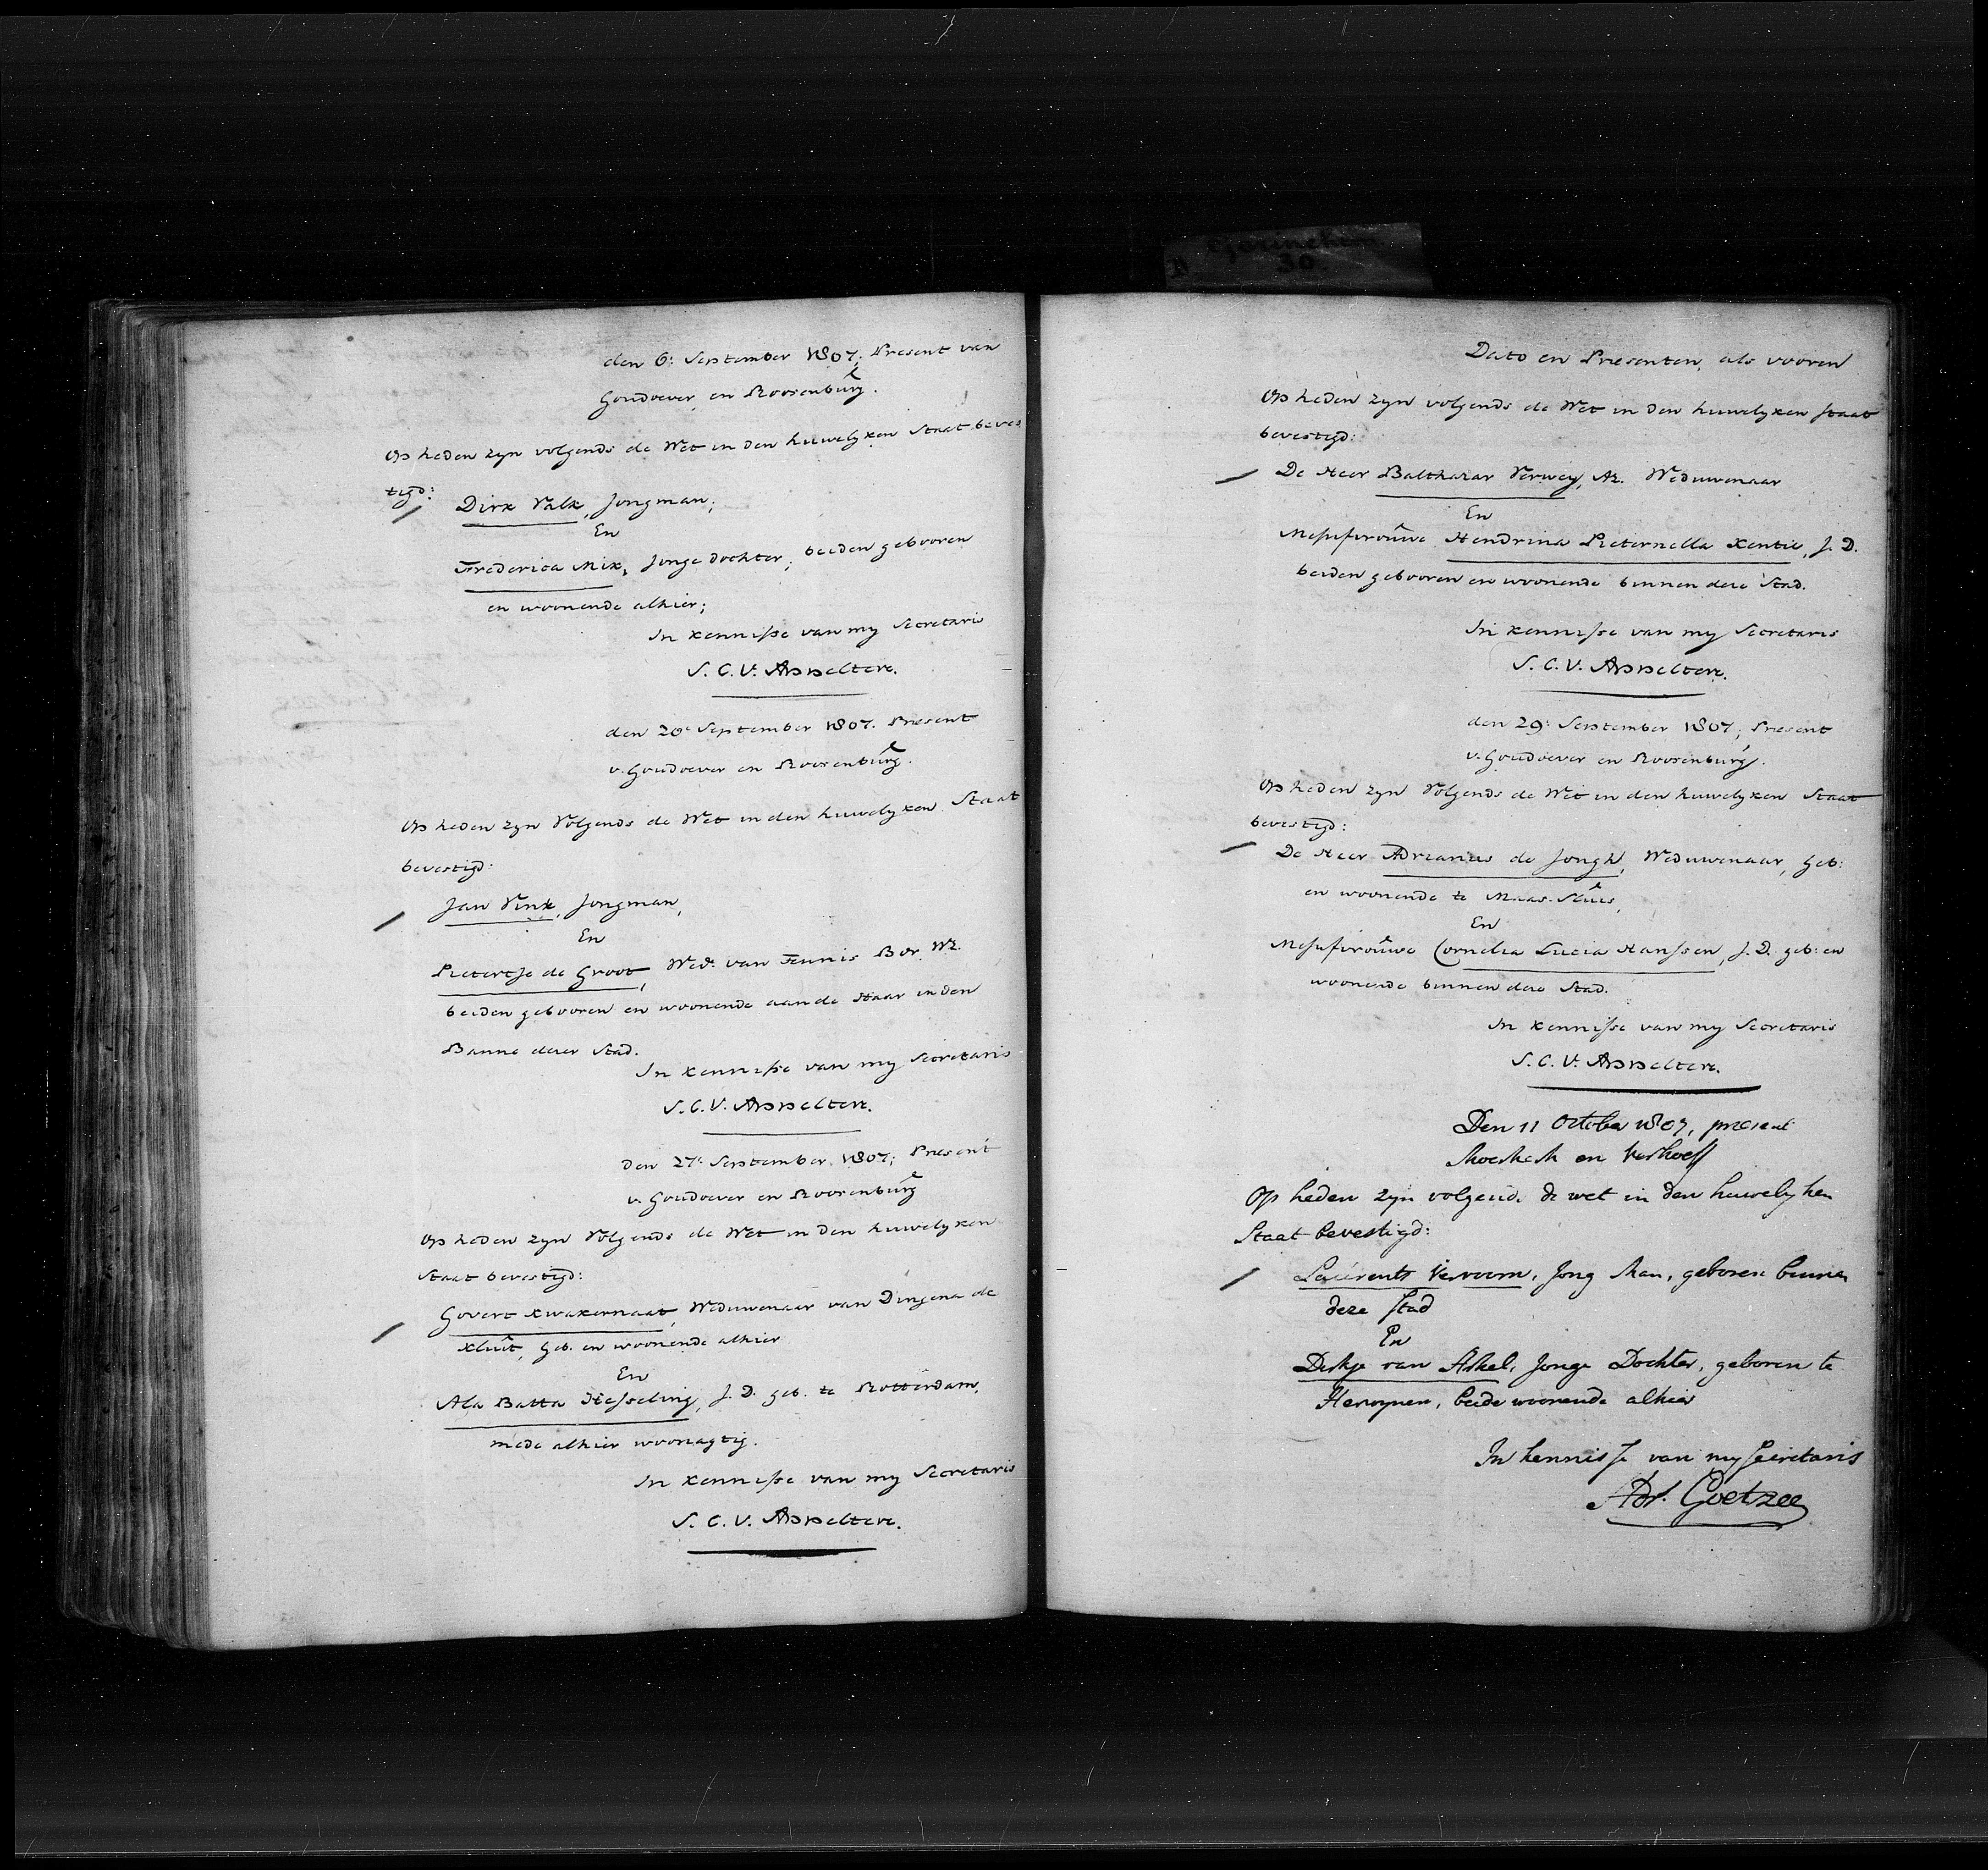 Gorinchem
D 30
den 6: September 1807; Present van
Goudoever en Roosenburg.
Op heden zyn volgends de Wet in den huwelyken Staat beves
tigd:
Dirk Valk, Jongman,
En
Frederica Mix, Jonge dochter, beiden gebooren
en woonende alhier;
In kennisse van my Secretaris
S. C. V. Appeltere.
den 20e September 1807. Present
v. Goudoever en Roosenburg.
Op heden zyn Volgends de Wet in den huwelyken Staat
bevestigd:
Jan Vink, Jongman,
En
Pietertje de Groot, Wede. van Teunis Bor Wz.
beiden gebooren en woonende aan de Haar in den
Banne dezer Stad.
In kennisse van my Secretaris
S. C. V. Appeltere.
den 27e September 1807; Present
v. Goudoever en Roosenburg
Op heden zyn Volgends de Wet in den huwelyken
Staat bevestigd:
Govert Kwakernaat, Weduwenaar van Dingena de
Kluit, Geb. en woonende alhier
En
Ala Batta Hesseling, J. D. geb. te Rotterdam,
mede alhier woonagtig.
In kennisse van my Secretaris
S. C. V. Appeltere.
Dato en Presenten, als vooren
Op heden zyn volgends de Wet in den huwelyken staat
bevestigd:
De Heer Balthazar Verwey, Az. Weduwenaar
En
Mejufvrouwe Hendrina Pieternella Kentie, J. D.
beiden gebooren en woonende binnen deze Stad.
In kennisse van my Secretaris
S. C. V. Appeltere.
den 29e September 1807; Present
v. Goudoever en Roosenburg.
Op heden zyn Volgends de Wet in den huwelyken Staat
bevestigd:
De Heer Adrianus de Jongh, Weduwenaar, geb:
en woonende te Maas-Sluis,
En
Mejufvrouwe Cornelia Lucia Hanssen, J. D. geb: en
woonende binnen deze Stad.
In kennisse van my Secretaris
S. C. V. Appeltere.
Den 11 October 1807, present
en Verhoeff
Op heden zyn volgends de wet in den huwelyken
Staat bevestigd:
Laurents Vervoorn, Jong Man, geboren binnen
deze stad
En
Dirkje van Arkel, Jonge Dochter, geboren te
Herwynen, beide woonende alhier
In kennisse van my Secretaris
Adr. Goetzee